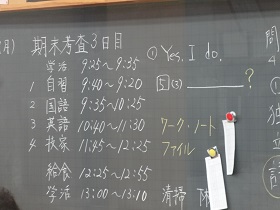 月)
期末考査3日目
学活 9:25〜9:35
1 自習 9:40〜9:20
2 国語 9:35〜10:25
3 英語 10:40〜11:30
4 技家 11:45〜12:25
給食 12:25〜12:55
学活 13:00〜13:10
① Yes, I do.
5 (3) ?
ワーク・ノート
ファイル
清掃
問
4